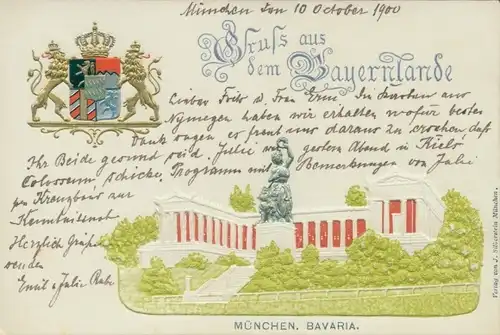 München den 10 October 1900
Gruss aus
dem Bayernlande
Lieber Fritz u. Frau Erna Die Karten aus
Nymegen haben wir erhalten wofür besten
Dank sagen es freut uns daraus zu ersehen daß
Ihr Beide gesund seid. Julie war gestern Abend in Kiels
Colosseum schicke Programm mit Bemerkungen von Julie
per Kreuzband zur
Kenntnisnahme
Herzlich Grüße
senden
Emil & Julie
MÜNCHEN. BAVARIA.
Verlag von J. München.